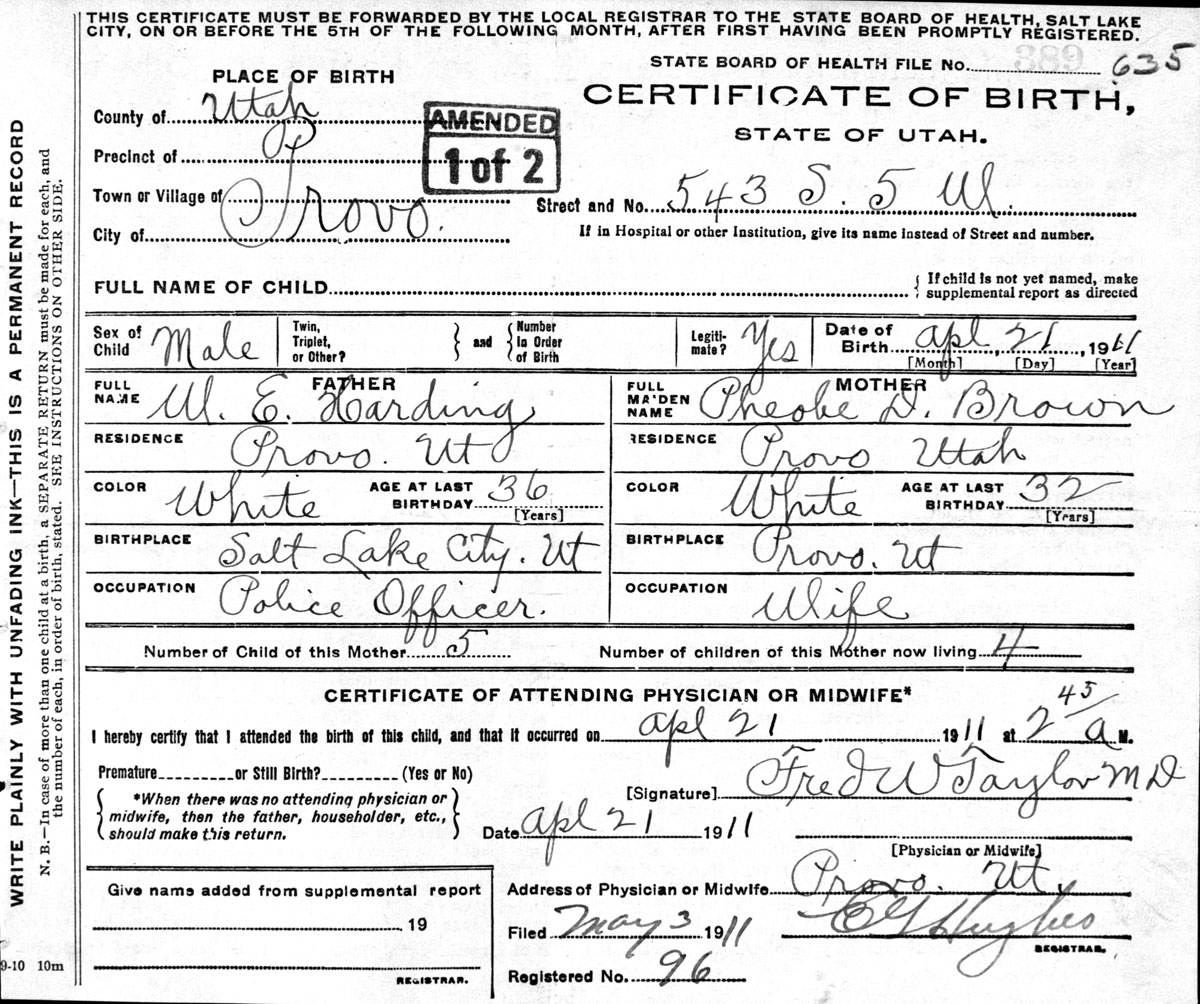 THIS CERTIFICATE MUST BE FORWARDED BY THE LOCAL REGISTRAR TO THE STATE BOARD OF HEALTH, SALT LAKE
CITY, ON OR BEFORE THE 5TH OF THE FOLLOWING MONTH, AFTER FIRST HAVING BEEN PROMPTLY REGISTERED.
STATE BOARD OF HEALTH FILE No. 389 635
PLACE OF BIRTH
CERTIFICATE OF BIRTH,
STATE OF UTAH.
County of Utah
AMENDED
1 of 2
Precinct of
Town or Village of
City of Provo.
Street and No. 543 S. 5 W.
If in Hospital or other Institution, give its name instead of Street and number.
FULL NAME OF CHILD
{ If child is not yet named, make
supplemental report as directed
Sex of Child Male
Twin, Triplet, or Other? } and { Number in Order of Birth
Legiti-mate? Yes
Date of Birth Apl 21, 1911
[Month] [Day] [Year]
FULL NAME FATHER W. E. Harding
FULL MAIDEN NAME MOTHER Pheobe D. Brown
RESIDENCE Provo. Ut
RESIDENCE Provo Utah
COLOR White AGE AT LAST BIRTHDAY 36 [Years]
COLOR White AGE AT LAST BIRTHDAY 32 [Years]
BIRTHPLACE Salt Lake City. Ut
BIRTHPLACE Provo. Ut
OCCUPATION Police Officer.
OCCUPATION Wife
Number of Child of this Mother 5 Number of children of this Mother now living 4
CERTIFICATE OF ATTENDING PHYSICIAN OR MIDWIFE*
I hereby certify that I attended the birth of this child, and that it occurred on Apl 21 1911 at 2 45 A M.
Premature or Still Birth? (Yes or No)
[Signature] Fred W Taylor M D
{ *When there was no attending physician or
midwife, then the father, householder, etc.,
should make this return. }
Date Apl 21 1911
[Physician or Midwife]
Give name added from supplemental report
19
REGISTRAR.
Address of Physician or Midwife Provo. Ut.
Filed May 3 1911 E G Hughes
REGISTRAR.
Registered No. 96
9-10 10m
WRITE PLAINLY WITH UNFADING INK—THIS IS A PERMANENT RECORD
N. B.—In case of more than one child at a birth, a SEPARATE RETURN must be made for each, and
the number of each, in order of birth, stated. SEE INSTRUCTIONS ON OTHER SIDE.